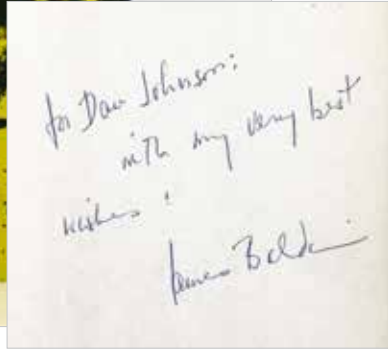 for Dan Johnson:
with my very best
wishes!
James Baldwin